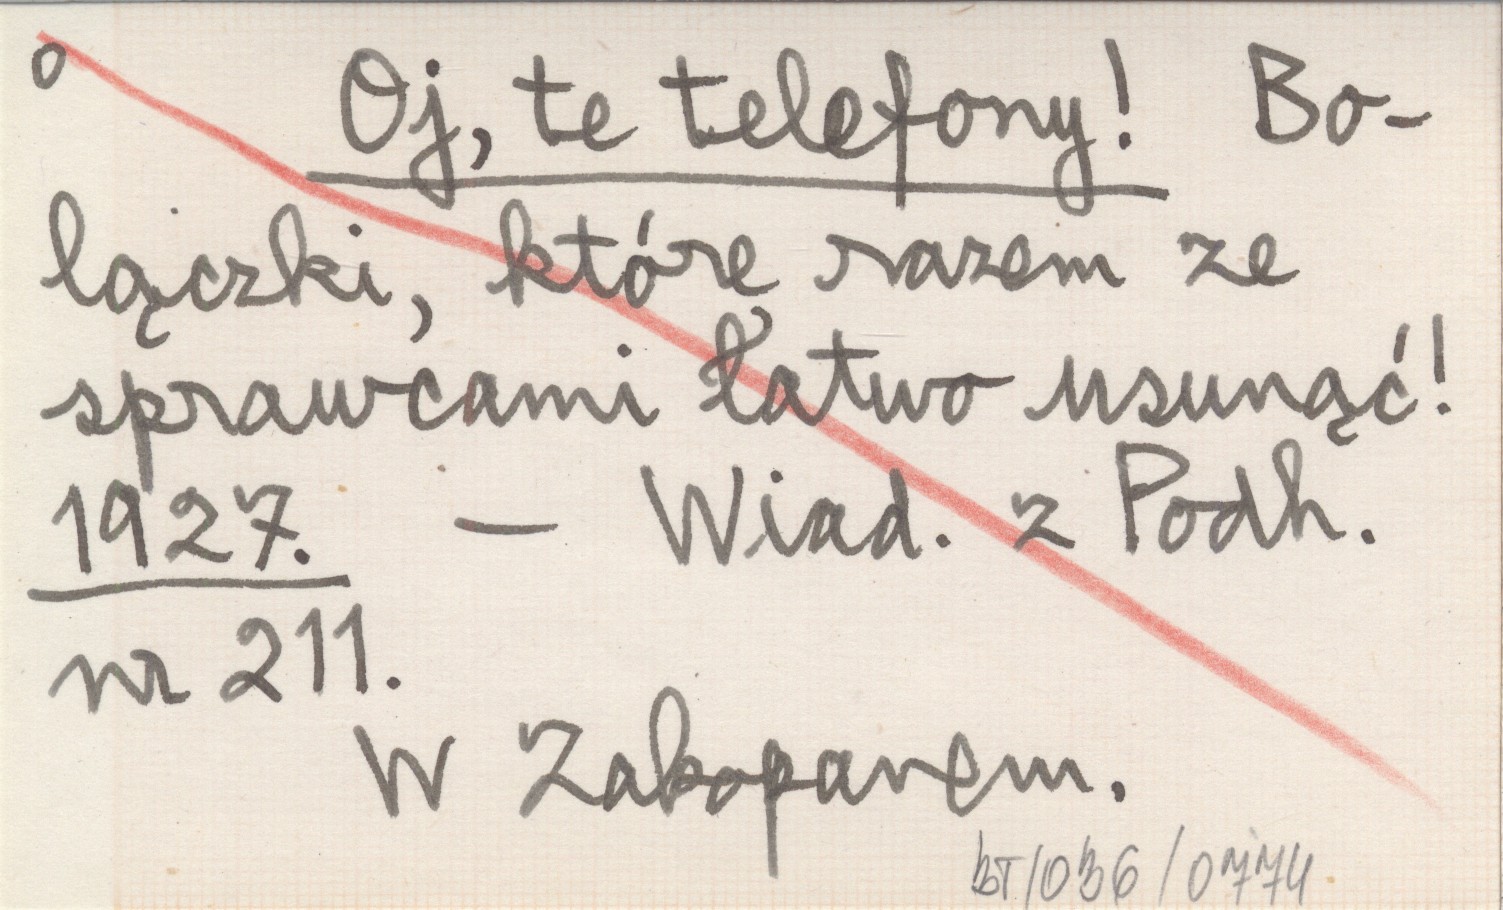 o Oj, te telefony! Bo-
lączki, które razem ze
sprawcami łatwo usunąć!
1927. — Wiad. z Podh.
nr 211.
W Zakopanem.
BT/036/0774